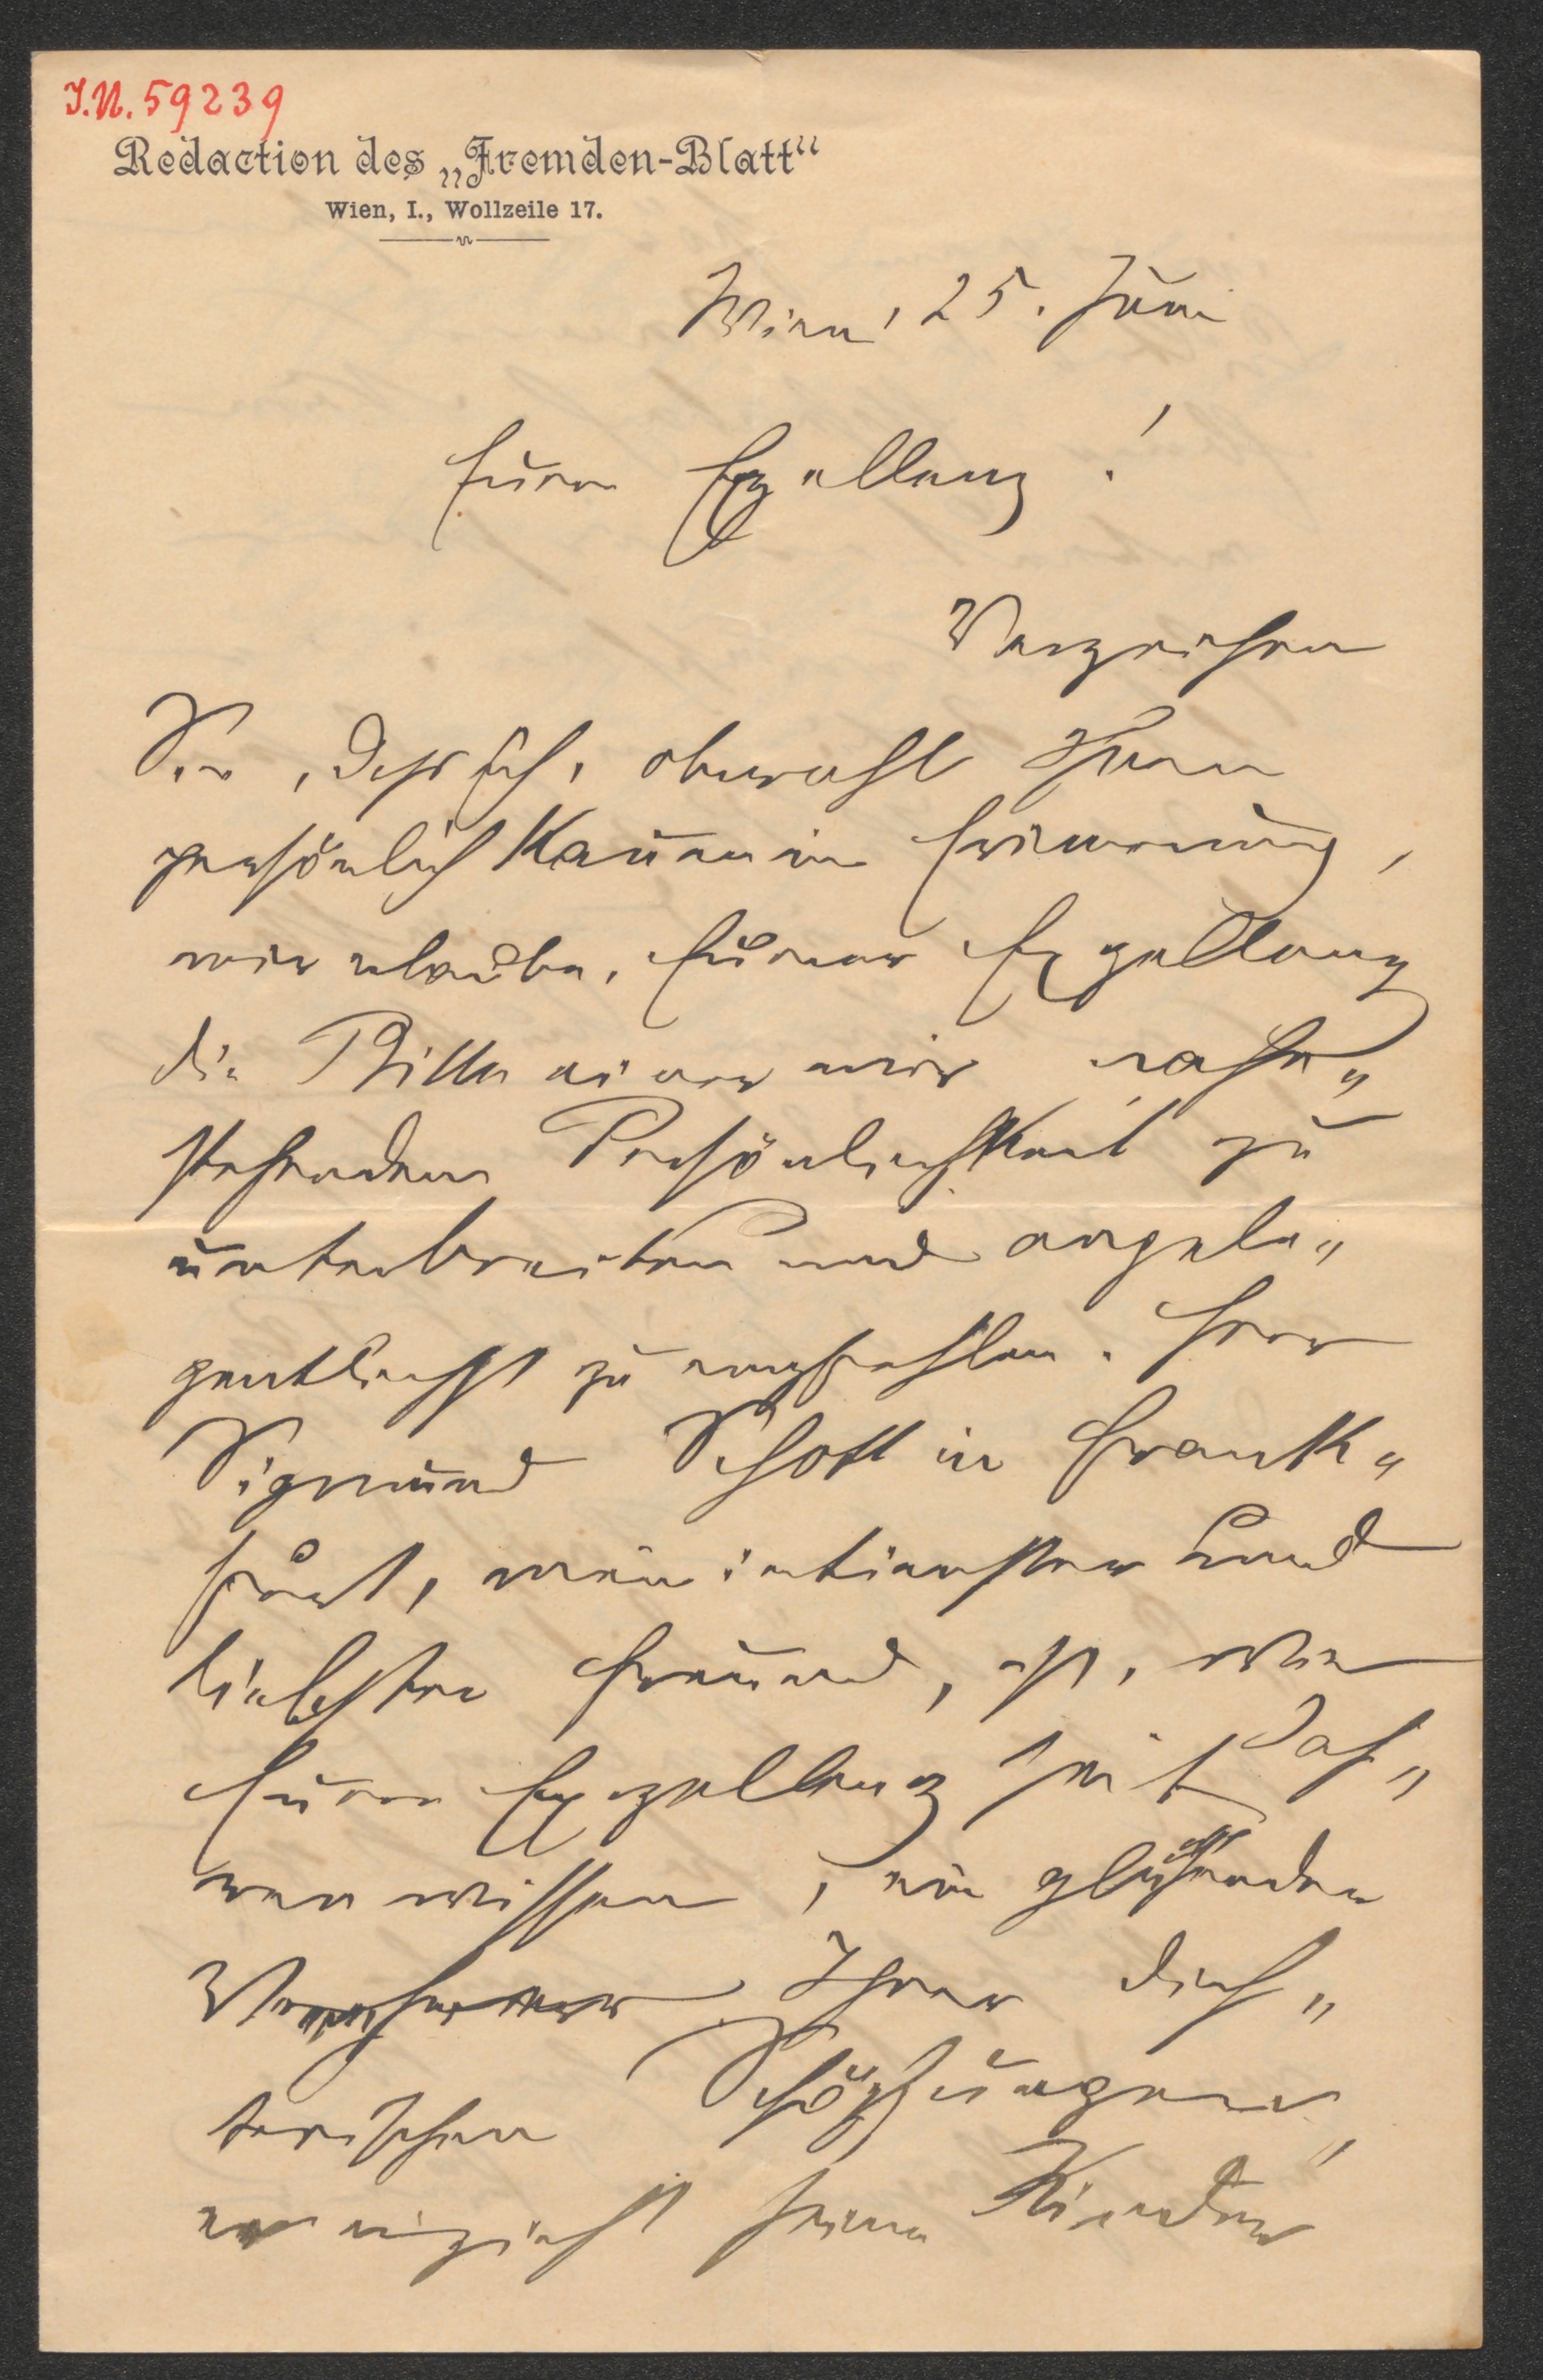 I.N. 59239
Redaction des „Fremden-Blatt“
Wien, I., Wollzeile 17.
Wien, 25. Juni
Eure Exzellenz!
Verzeihen
Sie, daß ich, obwohl Ihnen
persönlich kaum in Erinnerung,
mir erlaube, Eurer Exzellenz
die Bitte einer mir nahe„
stehenden Persönlichkeit zu
unterbreiten und angele„
gentlichst zu empfehlen. Herr
Sigmund Schott in Frank„
furt, mein intimster und
liebster Freund, ist, wie
Eure Exzellenz seit Jah„
ren wissen, ein glühender
Verehrer Ihrer dich„
terischen Schöpfungen,
er erzieht seine Kinder